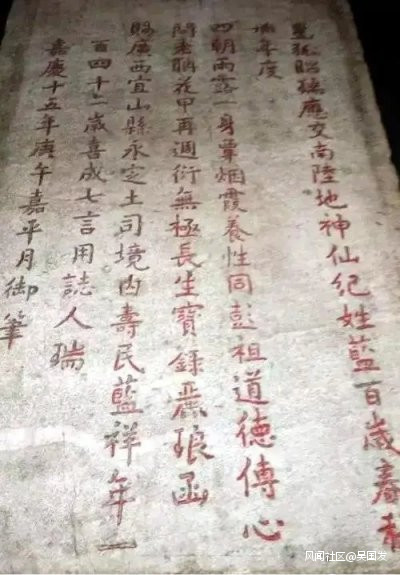 星弧昭瑞應交南陸地神仙紀姓藍百歲春秋
年度
四朝雨露一身覃烟霞養性同彭祖道德傳心
問老聃花甲再週衍無極長生寶籙麗琅函
賜廣西宜山縣永定土司境内壽民藍祥年一
百四十二歲喜成七言用誌人瑞
嘉慶十五年庚午嘉平月御筆
风闻社区@吴国发